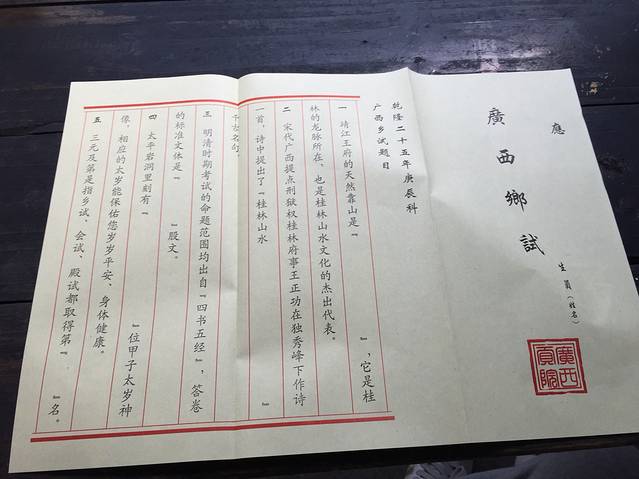 應
廣西鄉試
生員（姓名）
廣西貢院
乾隆二十五年庚辰科
广西乡试题目
一 靖江王府的天然靠山是『 』，它是桂
林的龙脉所在，也是桂林山水文化的杰出代表。
二 宋代广西提点刑狱权桂林府事王正功在独秀峰下作诗
一首，诗中提出了『桂林山水 』
千古名句。
三 明清时期考试的命题范围均出自『四书五经』，答卷
的标准文体是『 』股文。
四 太平岩洞里刻有『 』位甲子太岁神
像，相应的太岁能保佑您岁岁平安、身体健康。
五 三元及第是指乡试、会试、殿试都取得第『 』名。